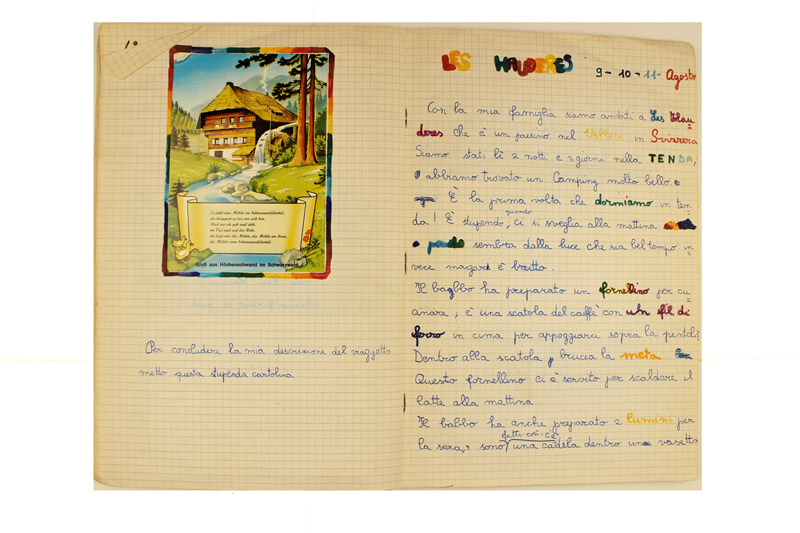 10
Es steht eine Mühle im Schwarzwäldertal,
die klappert so leis vor sich hin.
Und wo ich geh und steh,
im Tal und auf der Höh,
da liegt mir die Mühle, die Mühle im Sinn,
die Mühle vom Schwarzwäldertal.
Gruß aus Höchenschwand im Schwarzwald
Per concludere la mia descrizione del viaggetto
metto questa stupenda cartolina
LES HAUDERES 9-10-11- Agosto
Con la mia famiglia siamo andati a Les Hau
deres che è un paesino nel Vallese in Svizzera
Siamo stati lì 2 notti e 3 giorni nella TENDA,
abbiamo trovato un Camping molto bello.
È la prima volta che dormiamo in ten
da! È stupendo, quando ci si sveglia alla mattina
sembra dalla luce che sia bel tempo in
vece magari è brutto.
Il babbo ha preparato un fornellino per cu
cinare, è una scatola del caffè con un fil di
ferro in cima per appoggiarci sopra la pentola
Dentro alla scatola brucia la meta.
Questo fornellino ci è servito per scaldare il
latte alla mattina
Il babbo ha anche preparato 2 lumini per
la sera, sono fatti così-c'è una cadela dentro un vasetto